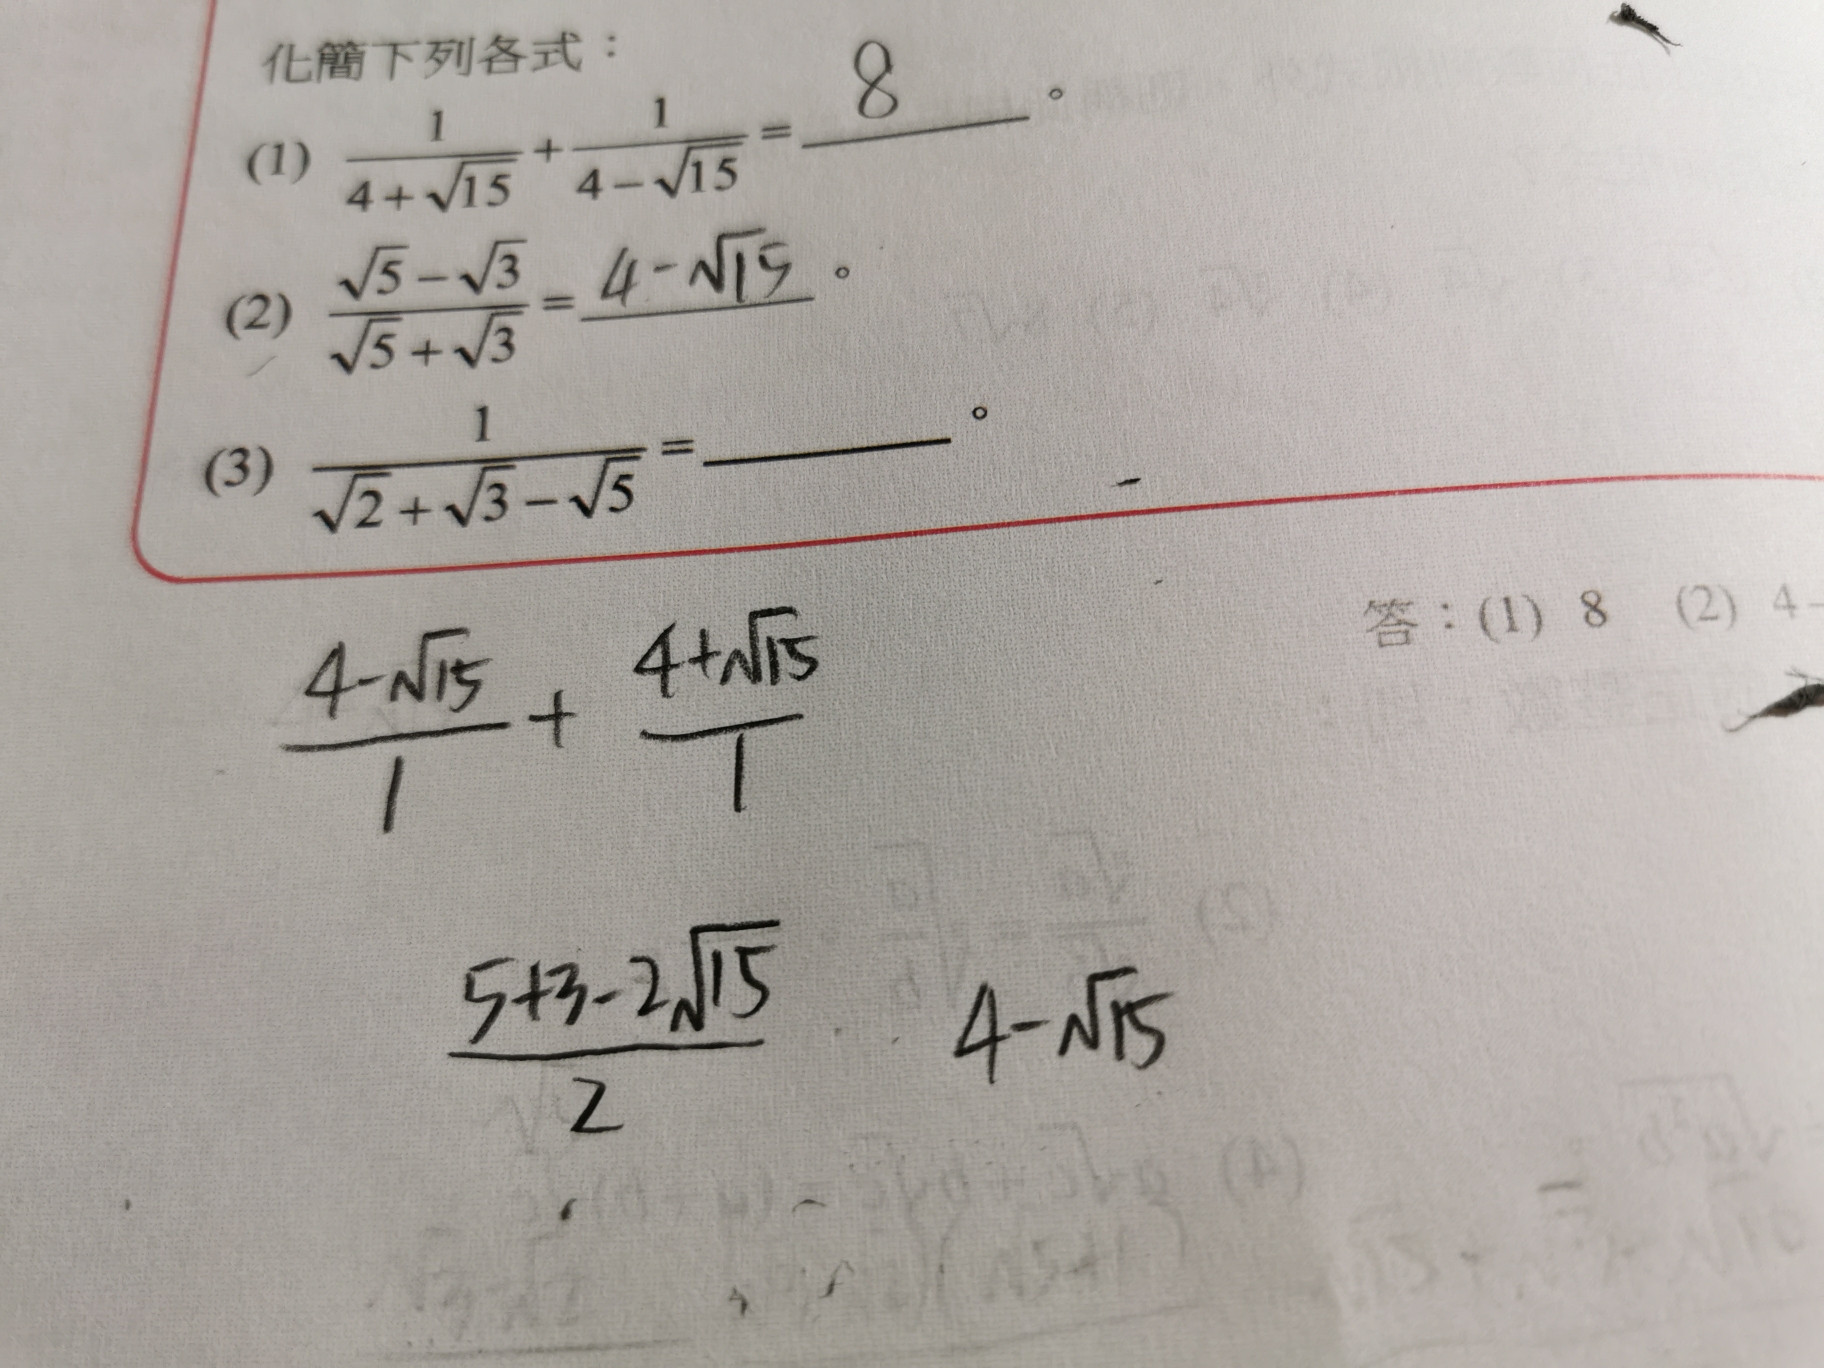 化簡下列各式：
(1) 1/(4+√15) + 1/(4−√15) = 8 。
(2) (√5−√3)/(√5+√3) = 4−√15 。
(3) 1/(√2+√3−√5) = ______ 。
答：(1) 8 (2) 4−
(4−√15)/1 + (4+√15)/1
(5+3−2√15)/2 4−√15